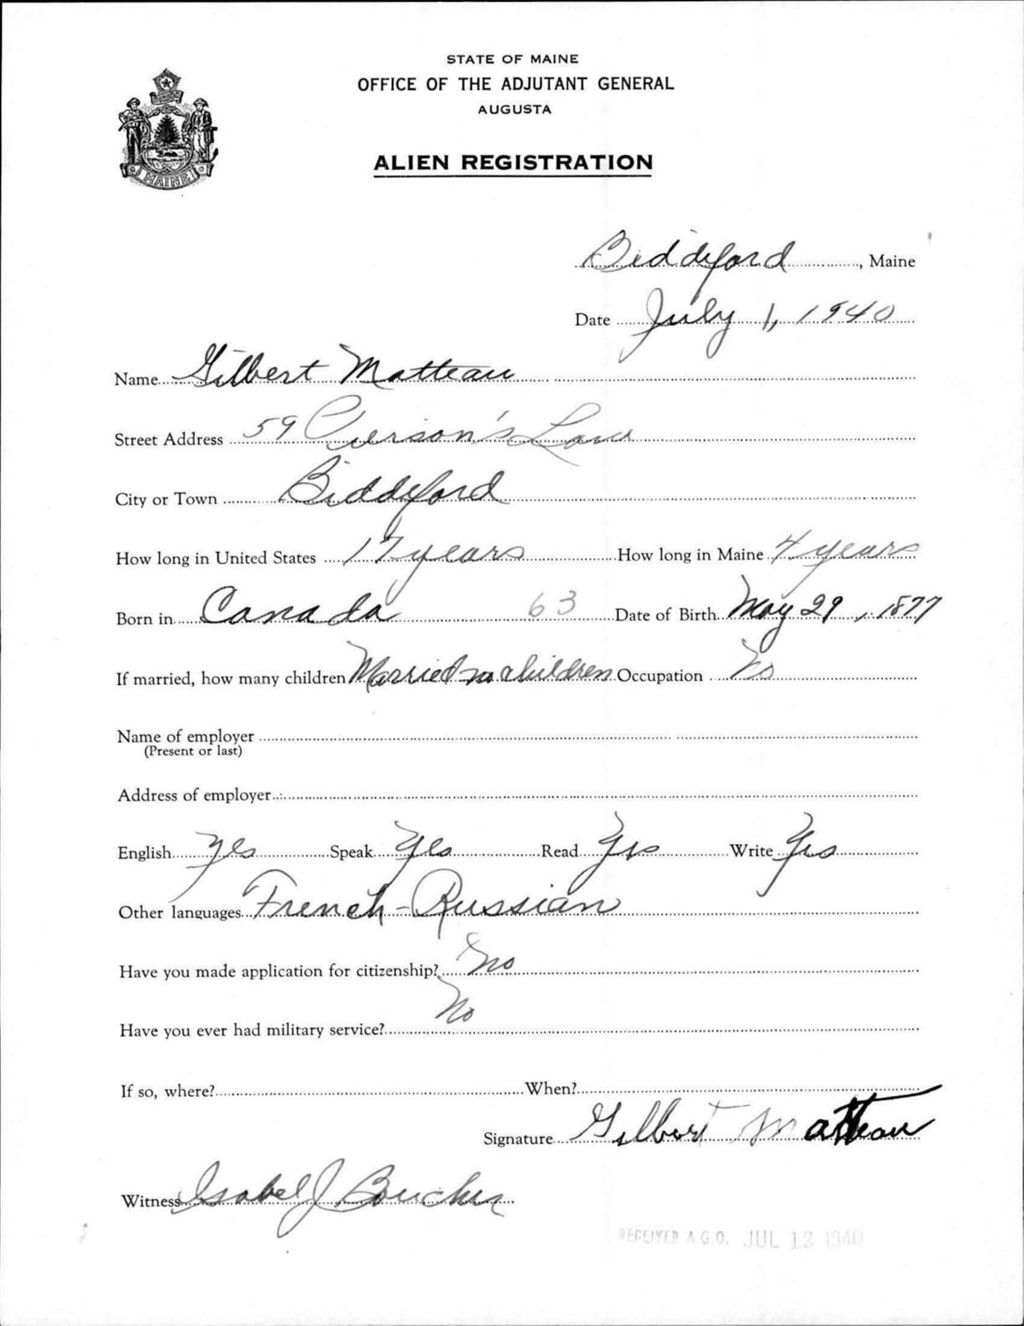 STATE OF MAINE
OFFICE OF THE ADJUTANT GENERAL
AUGUSTA
ALIEN REGISTRATION
MAINE
Biddeford, Maine
Date July 1, 1940
Name Gilbert Matteau
Street Address 59 Pierson's Lane
City or Town Biddeford
How long in United States 17 years How long in Maine 4 years
Born in Canada 63 Date of Birth May 29, 1877
If married, how many children Married no children Occupation No
Name of employer
(Present or last)
Address of employer
English Yes Speak Yes Read Yes Write Yes
Other languages French-Russian
Have you made application for citizenship? No
Have you ever had military service? No
If so, where? When?
Signature Gilbert Matteau
Witness Isabel J Boucher
RECEIVED A.G.O. JUL 12 1940